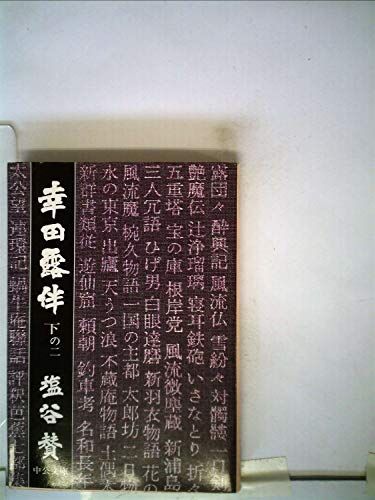 露団々 酔興記 風流仏 雪紛々 対髑髏 一口剣
艶魔伝 辻浄瑠璃 寝耳鉄砲 いさなとり 折々
五重塔 宝の庫 根岸党 風流微塵蔵 新浦島
三人冗語 ひげ男 白眼達磨 新羽衣物語 花の
風流魔 椀久物語 一国の主都 太郎坊 二日物
水の東京 出廬 天うつ浪 不蔵庵物語 土偶木
新群書類従 遊仙窟 頼朝 釣車考 名和長年
幸田露伴
下の二
塩谷賛
中公文庫
太公望 連環記 蝸牛庵聯話 評釈芭蕉七部集